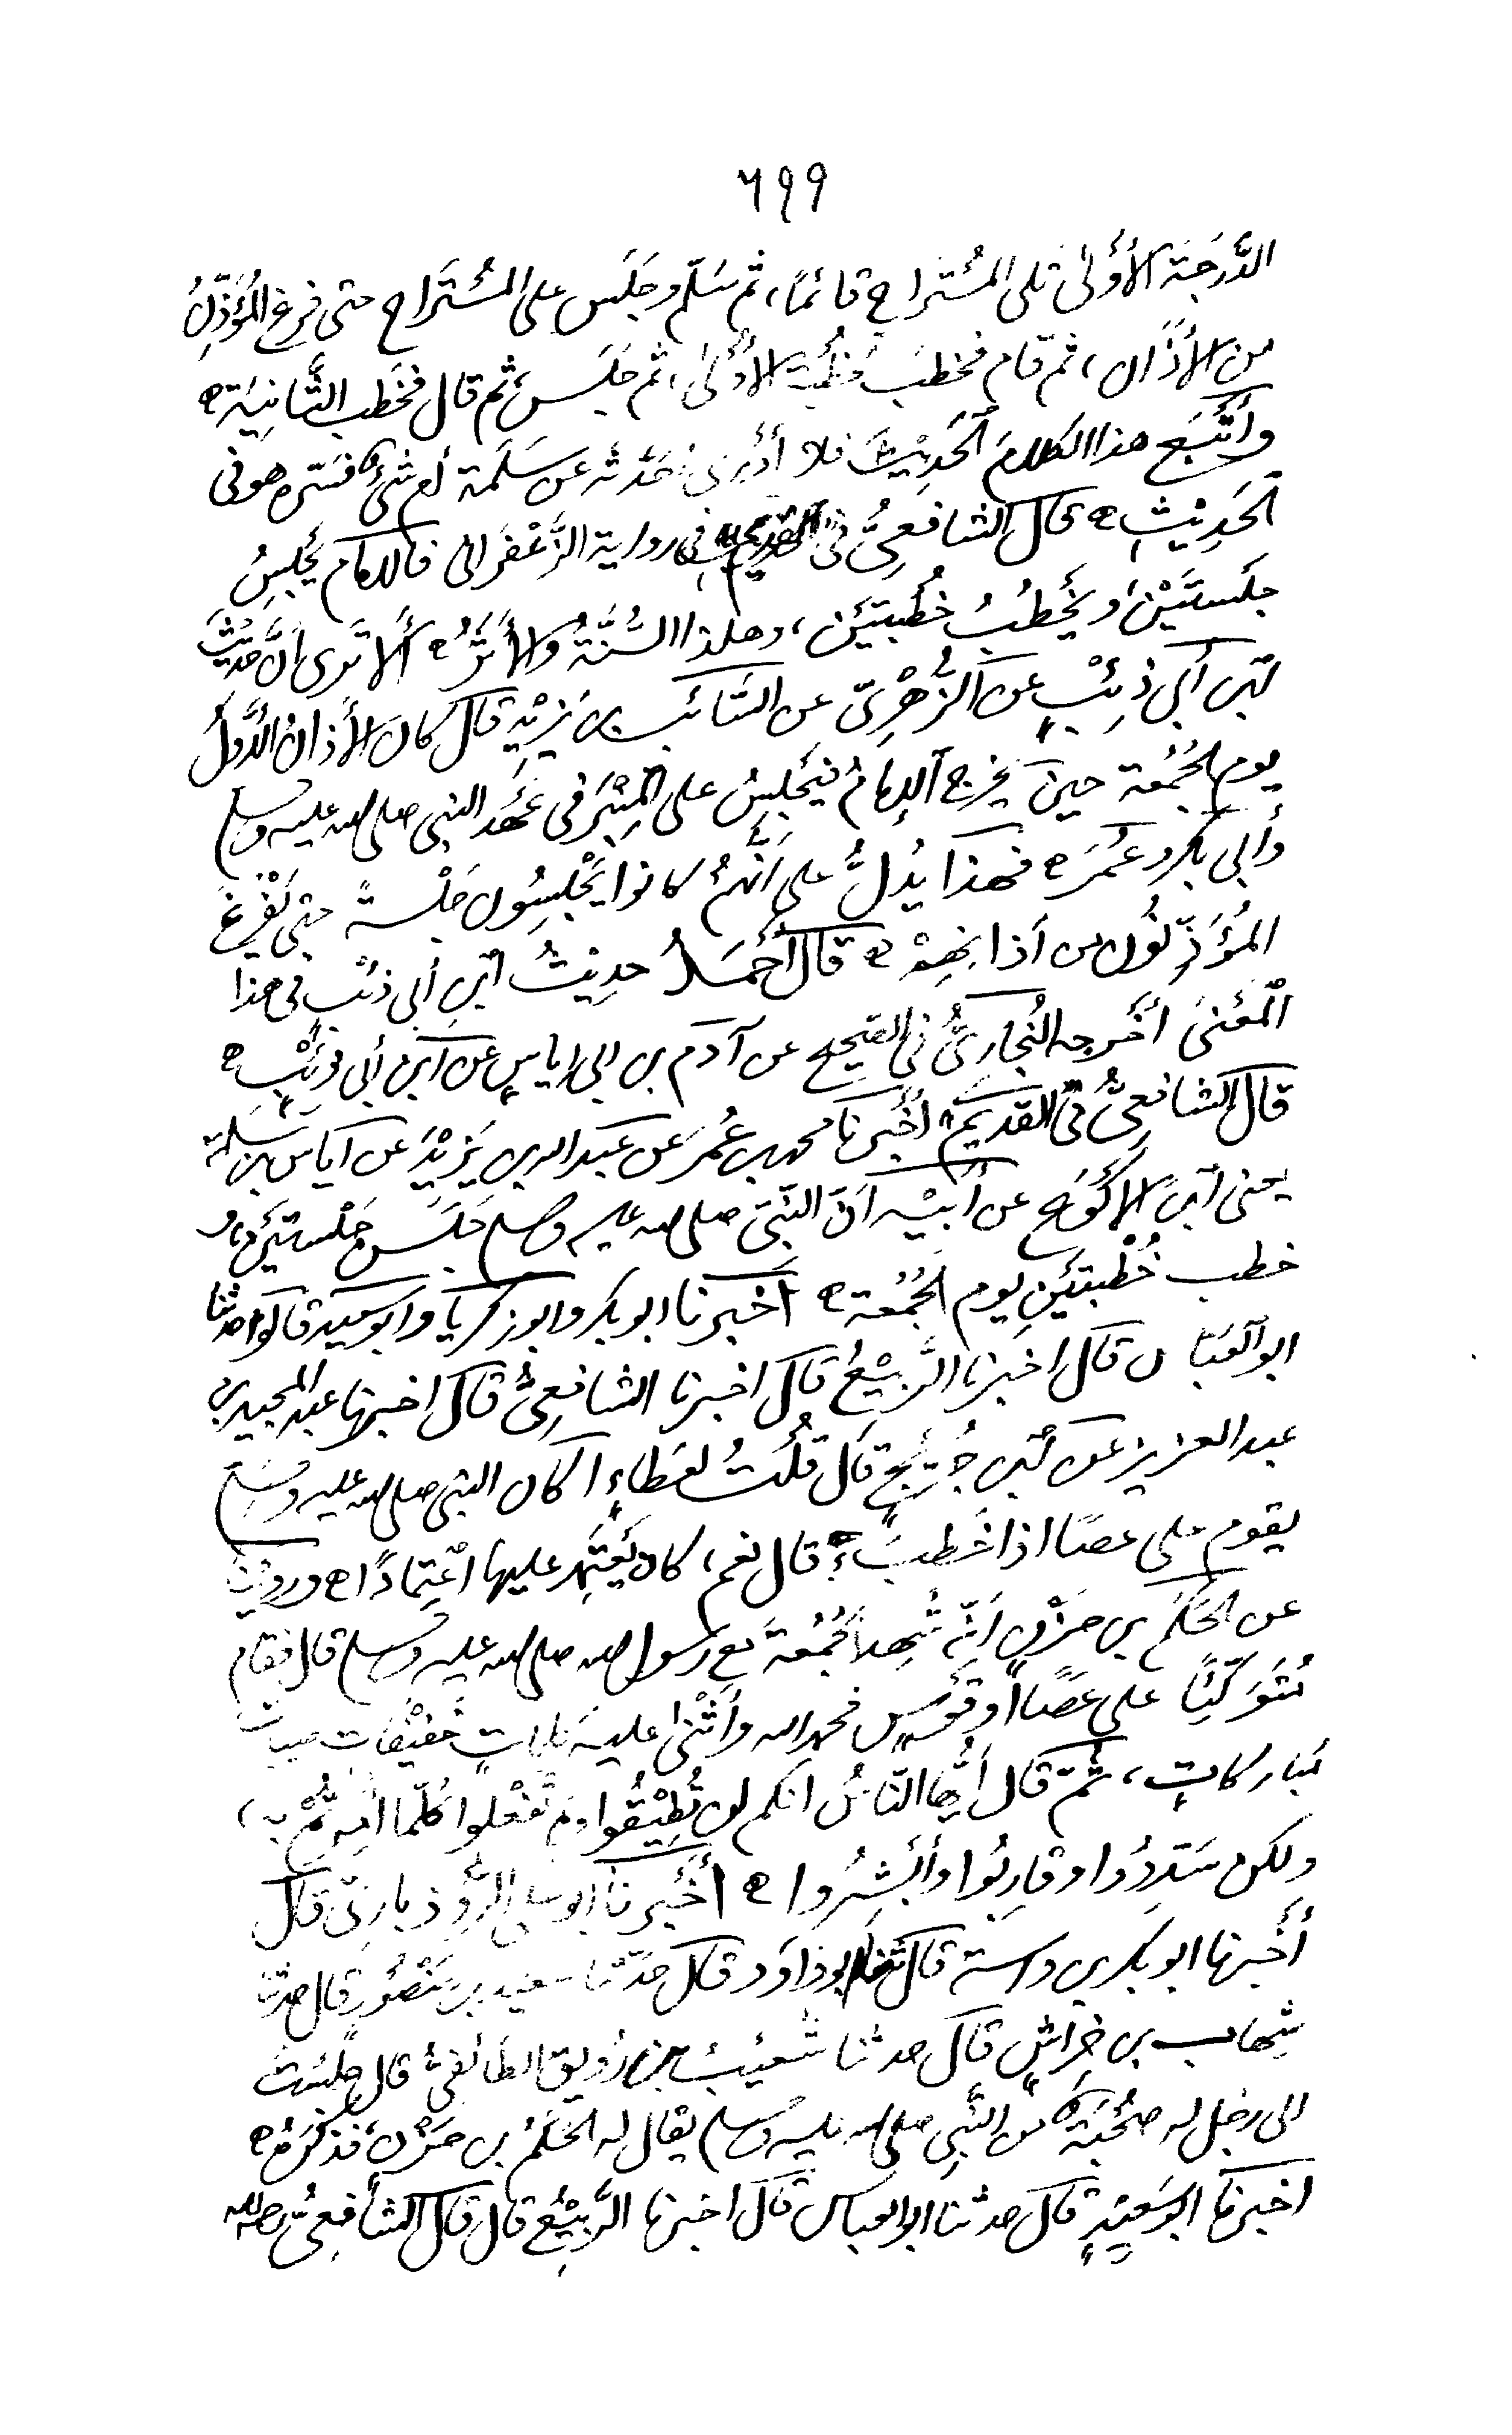 ٦٩٩
الدَّرَجَة الأُوْلىٰ تلى المُسْتَراح قائماً، ثم سَلّم وجَلَس على المُسْتَراح حتى فرغ المُؤَذِّنُ
من الأذَان، ثم قام فخطَبَ خُطْبَة الأُوْلىٰ، ثم جَلَس، ثم قال فخَطَب الثَّانِيَة ه
وأَتْبَع هذا الكلامَ الحَدِيْثَ فلا أَدْرِى: حَدَّثه عن سَلَمَة أم شئ فسّره هو فى
الحَدِيْثِ ه قال الشافعىُّ فى القديم فى رواية الزَّعْفَرانى فالإمام يَجْلِسُ
جلْسَتَيْنِ ويَخْطُبُ خُطْبَتَيْن، وهذا السُّنَّةُ والأَثَرُ ه أَلاَ تَرى أَنَّ حَدِيْثَ
ابْن أبى ذِئْبٍ عن الزُّهْرِىّ عن السَّائب بن يَزِيْد قال كان الأَذانُ الأوَّلُ
يوم الجُمُعة حينَ يخرج الإمامُ فيَجْلِسُ على المِنْبَر فى عَهْد النبى صلى الله عليه وسلم
وأبى بَكْر وعُمَر ه فهذا يَدُلُّ على أَنَّهُم كانوا يَجْلِسُون جَلْسةً حتى يَفْرغ
المُؤَذِّنُون من أذانِهِمْ ه قال أَحْمَدُ حديثُ ابْنِ أبى ذئْب فى هذا
المَعْنىٰ أَخْرجه البُخارىُّ فى الصّحيح عن آدم بن ابى اياسٍ عن ابْن أبى ذِئْبٍ ه
قال الشافعىُّ فى القديم أَخْبرنا محمد بن عُمَر عن عبد الله بن يَزِيْدَ عن اياس بن سَلَمة
يعنى ابْنَ الأكْوَع عن أَبيْه أنّ النّبىّ صلى الله عليه وسلم جَلَسَ جَلْستَيْن و
خطب خُطْبتَيْنِ يوم الجُمُعة ه أخبرنا ابو بكر وابو زكريا وابو سعيد قالوا حدثنا
ابو العَبّاس قال اخبرنا الرَّبِيْعُ قال اخبرنا الشافعىُّ قال اخبرنا عبد المجيد بن
عبد العزيز عن ابْن جُرَيْجٍ قال قُلْتُ لعَطاءٍ أكان النبى صلى الله عليه وسلم
يقوم على عصًا اذا خَطَبَ؟ قال نعم، كان يَعْتَمِد عليها اعْتِمادًا ه ورَوَيْنا
عن الحَكَم بن حَزْن أنّه شَهِدَ الجُمُعَة مع رسول الله صلى الله عليه وسلم قال فقام
مُتَوَكِّئًا على عَصًا أو قَوْسٍ فحمد الله وأَثْنىٰ عليه كلماتٍ خَفِيْفَات طيبات
مُباركاتٍ، ثُمّ قال أَيُّها النّاسُ انكم لن تُطِيْقُوا ولن تَفْعَلوا كُلّما أُمِرْتُمْ به،
ولكن سَدِّدُوا وقارِبُوا وأَبْشِرُوا ه أَخْبَرنا ابو على الرُّوذبارىّ قال
أَخْبرنا ابو بكر بن داسة قال حدثنا ابو داوَد قال حدّثنا سعيد بن مَنْصُور قال حدثنا
شِهاب بن خِراشٍ قال حدثنا شُعَيْب بن رُزَيق الطَّائفىُّ قال جلَسْتُ
الى رجل له صُحْبَةٌ من النَّبِى صلى الله عليه وسلم يقال له الحَكَمُ بن حَزْن، فذَكَرَهُ ه
اخبرنا ابو سَعِيْدٍ قال حدثنا ابو العباس قال اخبرنا الرَّبِيْعُ قال قال الشافعىُّ رحمه الله